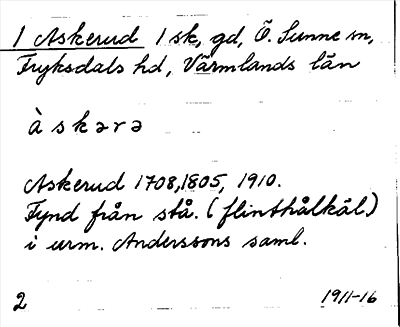 1 Askerud 1 sk, gd, Ö. Sunne sn,
Fryksdals hd, Värmlands län
à s k ə r ə
Askerud 1708, 1805, 1910.
Fynd från stå. (flinthålkäl)
i urm. Anderssons saml.
2 1911-16